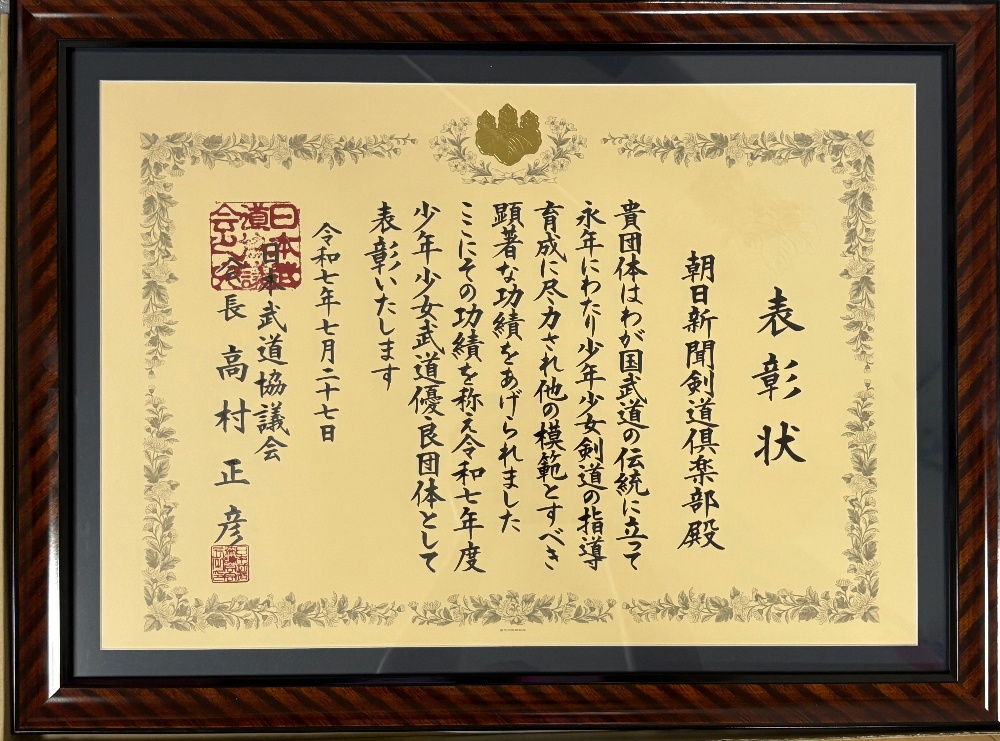 表彰状
朝日新聞剣道倶楽部殿
貴団体はわが国武道の伝統に立って
永年にわたり少年少女剣道の指導
育成に尽力され他の模範とすべき
顕著な功績をあげられました
ここにその功績を称え令和七年度
少年少女武道優良団体として
表彰いたします
令和七年七月二十七日
日本武道協議会
会長 高村正彦